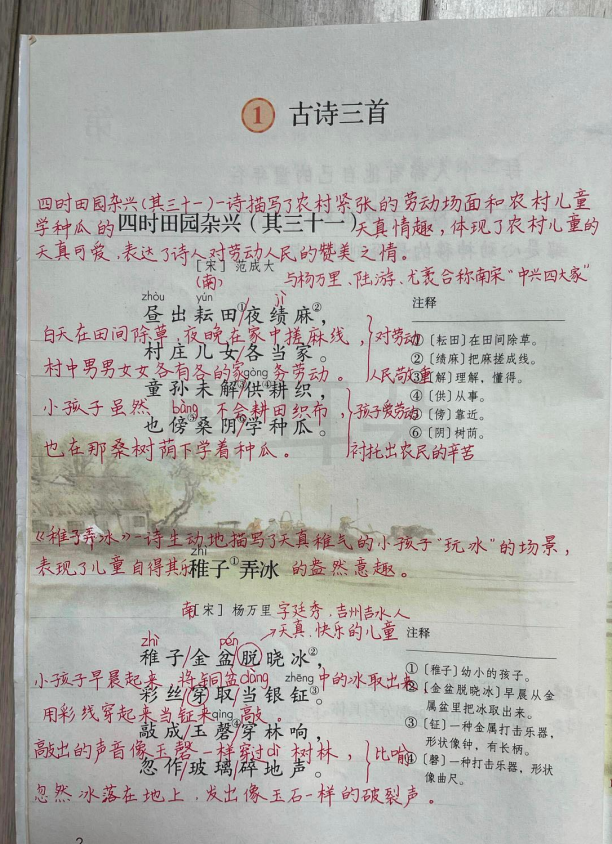 1 古诗三首
四时田园杂兴(其三十一)一诗描写了农村紧张的劳动场面和农村儿童
学种瓜的
四时田园杂兴（其三十一）
天真情趣，体现了农村儿童的
天真可爱，表达了诗人对劳动人民的赞美之情。
［宋］范成大
(南)
与杨万里、陆游、尤袤合称南宋"中兴四大家"
zhòu yún jì
昼出耘田/夜绩麻②，
注释
白天在田间除草，夜晚在家中搓麻线，
对劳动
①〔耘田〕在田间除草。
村庄儿女/各当家。
②〔绩麻〕把麻搓成线。
村中男男女女各有各的家务劳动。
人民敬重
③〔解〕理解，懂得。
gòng
童孙未解/供耕织，
④〔供〕从事。
小孩子虽然
不会耕田织布，
孩子爱劳动
⑤〔傍〕靠近。
bàng
也傍桑阴/学种瓜。
⑥〔阴〕树荫。
也在那桑树荫下学着种瓜。
衬托出农民的辛苦
《稚子弄冰》一诗生动地描写了天真稚气的小孩子"玩冰"的场景，
zhì
表现了儿童自得其乐
稚子①弄冰
的盎然意趣。
南［宋］杨万里
字廷秀，吉州吉水人
→天真、快乐的儿童
注释
zhì pén
稚子/金盆/脱晓冰②，
①〔稚子〕幼小的孩子。
小孩子早晨起来，将铜盆
中的冰取出来
②〔金盆脱晓冰〕早晨从金
属盆里把冰取出来。
dāng zhēng
彩丝/穿取/当银钲③。
用彩线穿起来当钲来敲。
③〔钲〕一种金属打击乐器，
形状像钟，有长柄。
qìng
敲成/玉磬④/穿林响，
敲出的声音像玉磬一样穿过树林，
比喻
④〔磬〕一种打击乐器，形状
像曲尺。
dì
忽作/玻璃/碎地声。
忽然冰落在地上，发出像玉石一样的破裂声。
2